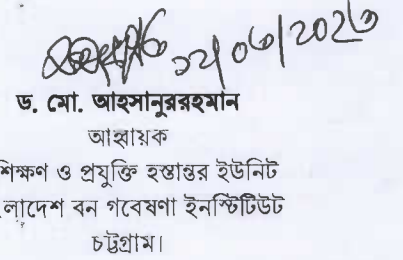 ১২/০৬/2023
ড. মো. আহসানুররহমান
আহ্বায়ক
শিক্ষণ ও প্রযুক্তি হস্তান্তর ইউনিট
লাদেশ বন গবেষণা ইনস্টিটিউট
চট্টগ্রাম।